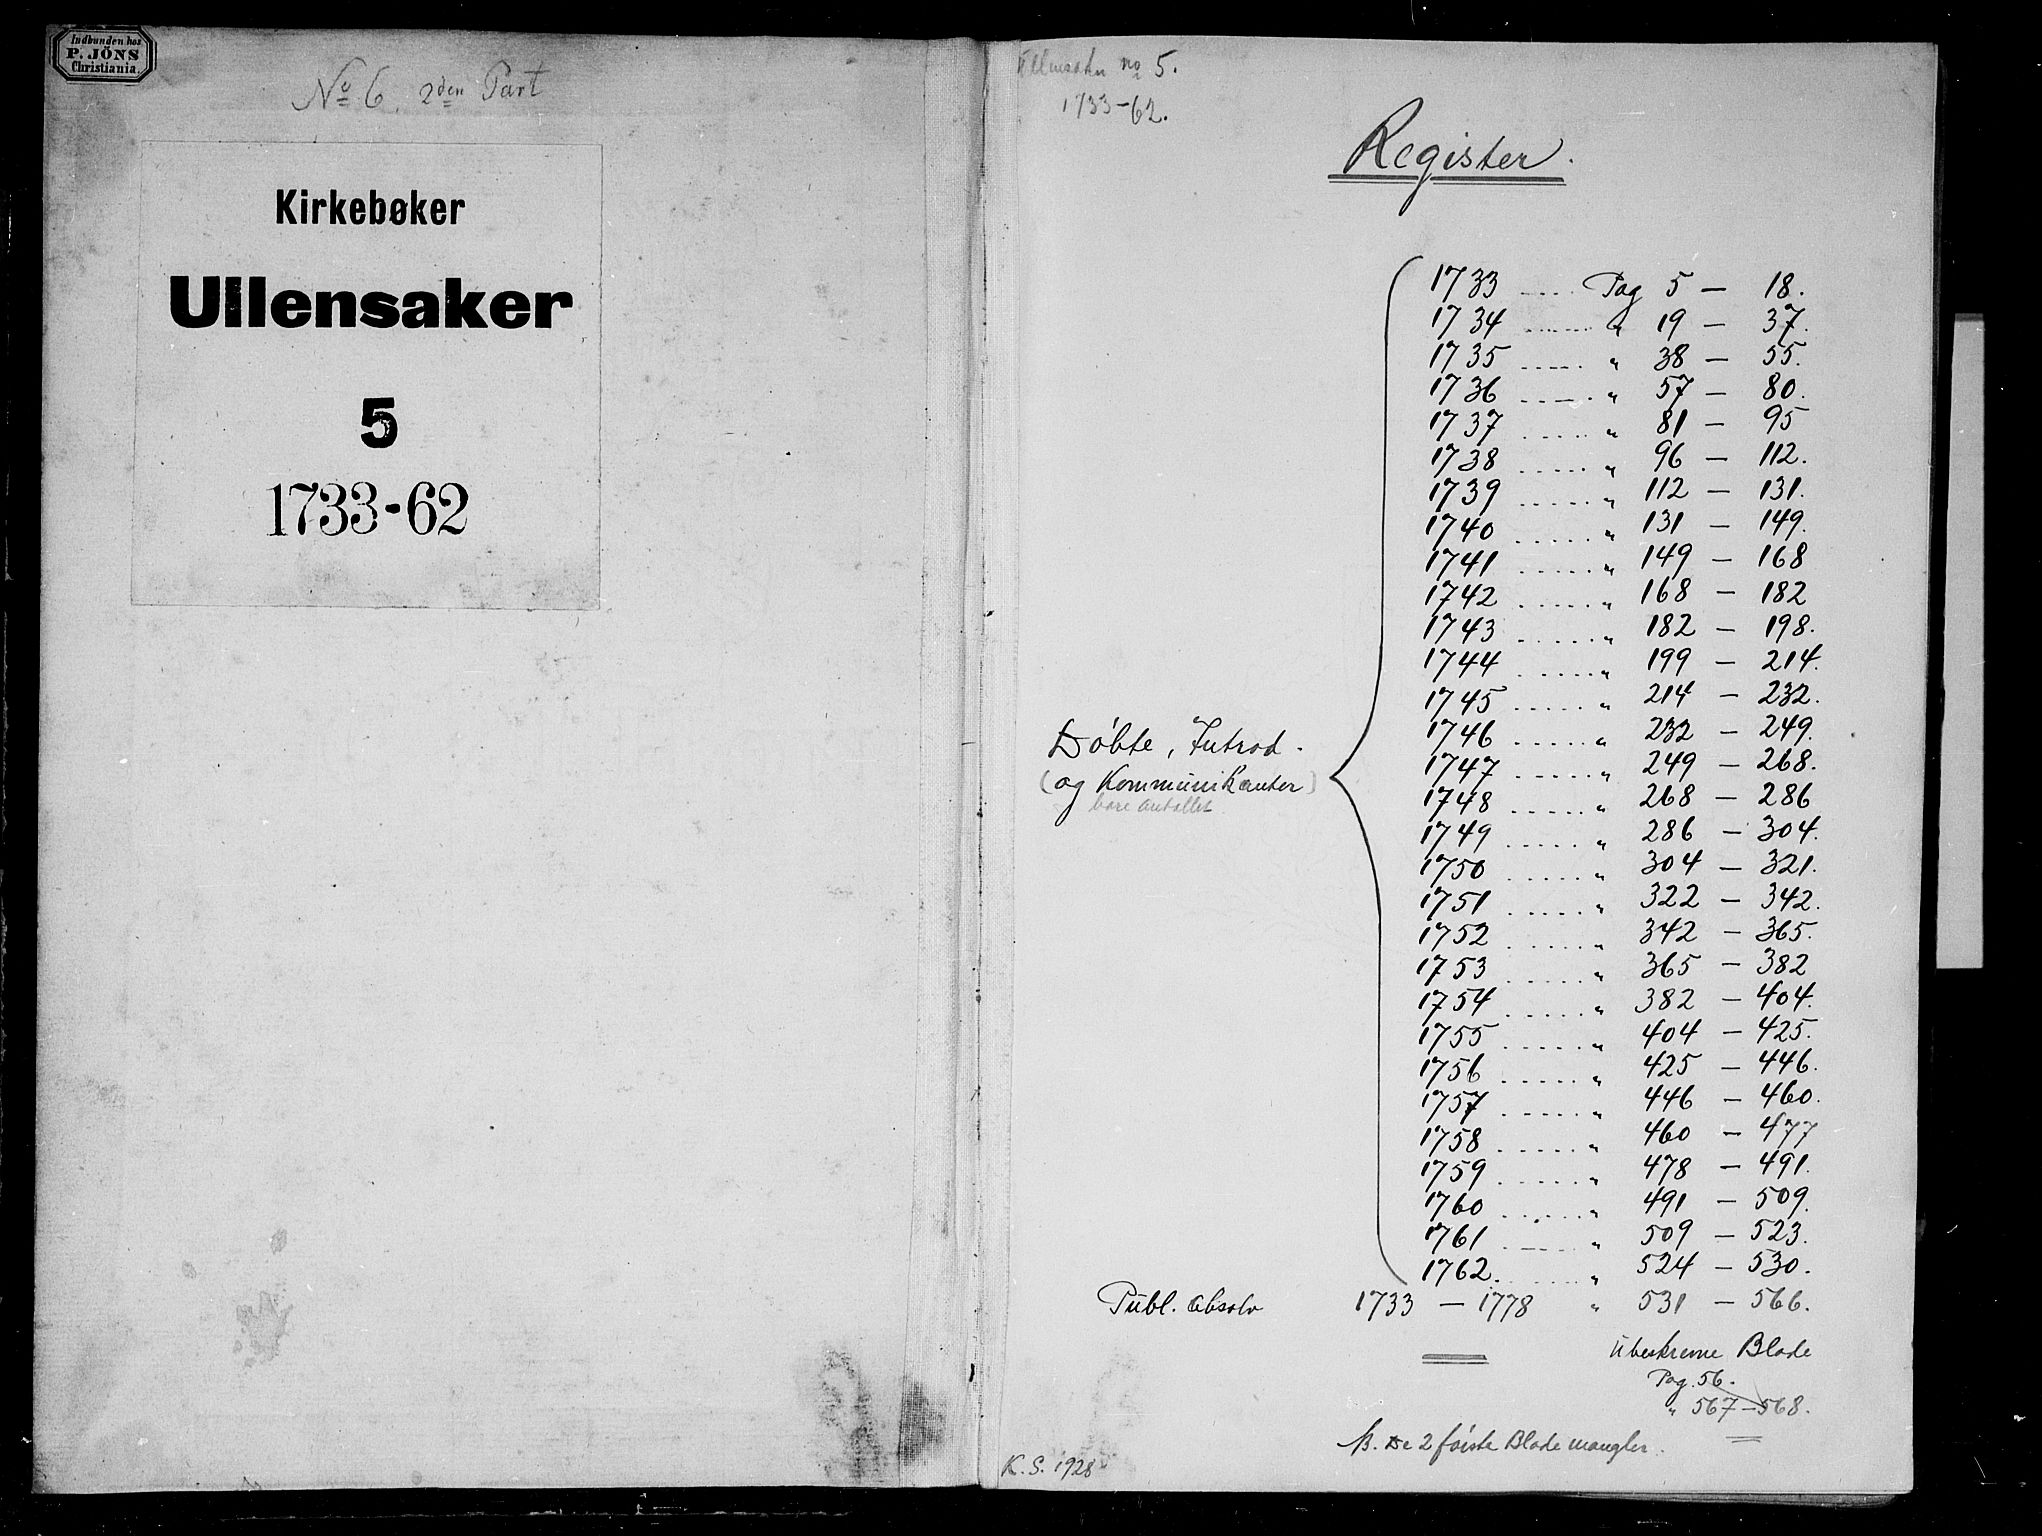 Indbunden hos
P. JÖNS
Christiania.
No 6. 2den Part
Kirkebøker
Ullensaker
5
1733-62
Ullensaker no 5.
1733-62.
Register.
1733 ..... Pag 5 — 18.
1734 ....... " 19 — 37.
1735 ...... " 38 — 55.
1736 ...... " 57 — 80.
1737 ...... " 81 — 95
1738 ...... " 96 — 112.
1739 ...... " 112 — 131.
1740 ...... " 131 — 149.
1741 ...... " 149 — 168
1742 ...... " 168 — 182
1743 ...... " 182 — 198.
1744 ...... " 199 — 214.
1745 ...... " 214 — 232.
1746 ...... " 232 — 249.
1747 ...... " 249 — 268.
1748 ...... " 268 — 286
1749 ...... " 286 — 304.
1750 ...... " 304 — 321.
1751 ...... " 322 — 342.
1752 ...... " 342 — 365.
1753 ...... " 365 — 382
1754 ...... " 382 — 404.
1755 ...... " 404 — 425.
1756 ...... " 425 — 446.
1757 ...... " 446 — 460.
1758 ...... " 460 — 477
1759 ...... " 478 — 491.
1760 ...... " 491 — 509.
1761 ...... " 509 — 523.
1762. ...... " 524 — 530.
Döbte, Introd.
(og Kommunikanter)
bare antallet
Publ. absolv 1733 — 1778 " 531 — 566.
Ubeskrevne Blade
Pag. 56.
" 567 — 568.
NB. De 2 første Blade mangler.
K. S. 1928